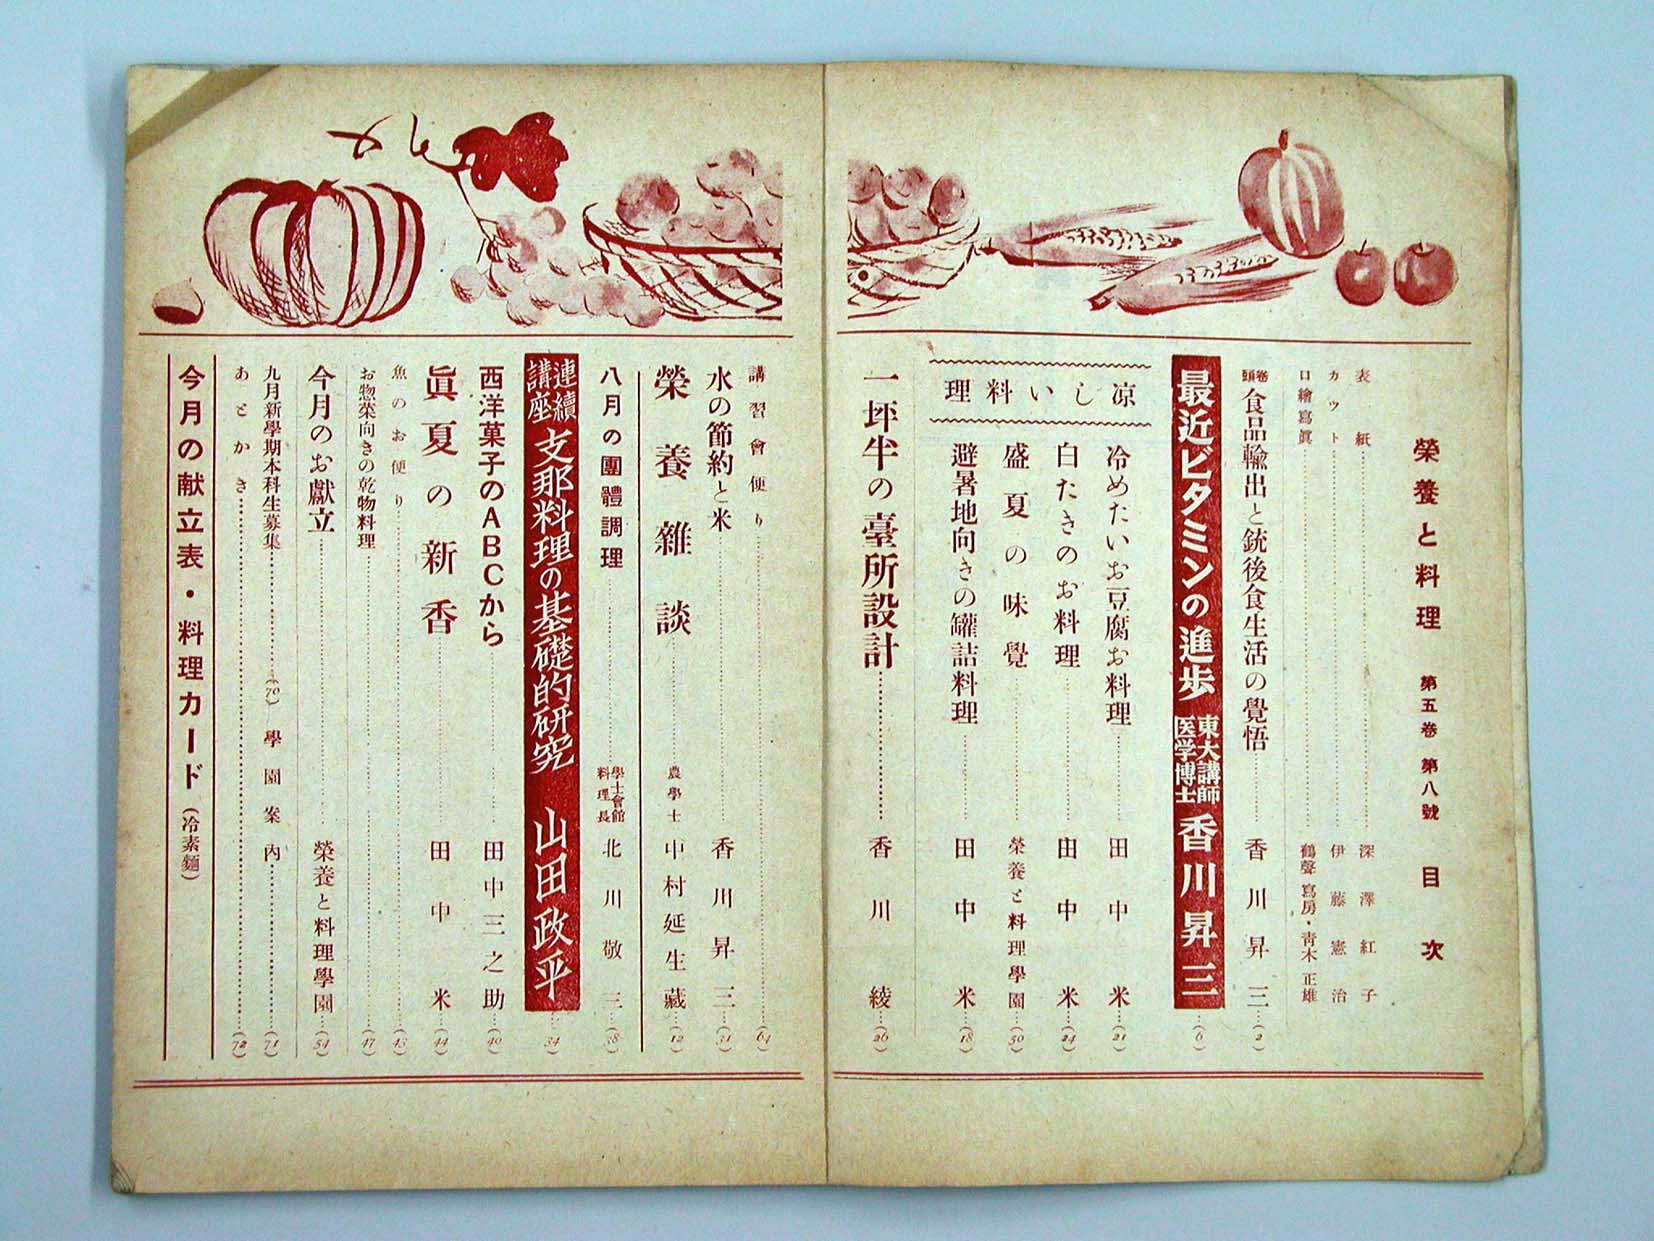 榮養と料理 第五卷 第八號 目次
表紙 深澤紅子
カット 伊藤憲治
口繪寫眞 鶴聲寫房・靑木正雄
卷頭 食品輸出と銃後食生活の覺悟 香川昇三 (2)
最近ビタミンの進歩 東大講師 医学博士 香川昇三 (6)
凉しい料理
冷めたいお豆腐お料理 田中米 (21)
白たきのお料理 田中米 (24)
盛夏の味覺 榮養と料理學園 (50)
避暑地向きの罐詰料理 田中米 (18)
一坪半の臺所設計 香川綾 (26)
講習會便り (64)
水の節約と米 香川昇三 (31)
榮養雜談 農學士 中村延生藏 (12)
八月の團體調理 學士會館 料理長 北川敬三 (38)
連續講座 支那料理の基礎的研究 山田政平 (34)
西洋菓子のABCから 田中三之助 (40)
眞夏の新香 田中米 (44)
魚のお便り (43)
お惣菜向きの乾物料理 (47)
今月のお獻立 榮養と料理學園 (54)
九月新學期本科生募集 (70) 學園案內 (71)
あとかき (72)
今月の献立表・料理カード (冷素麵)